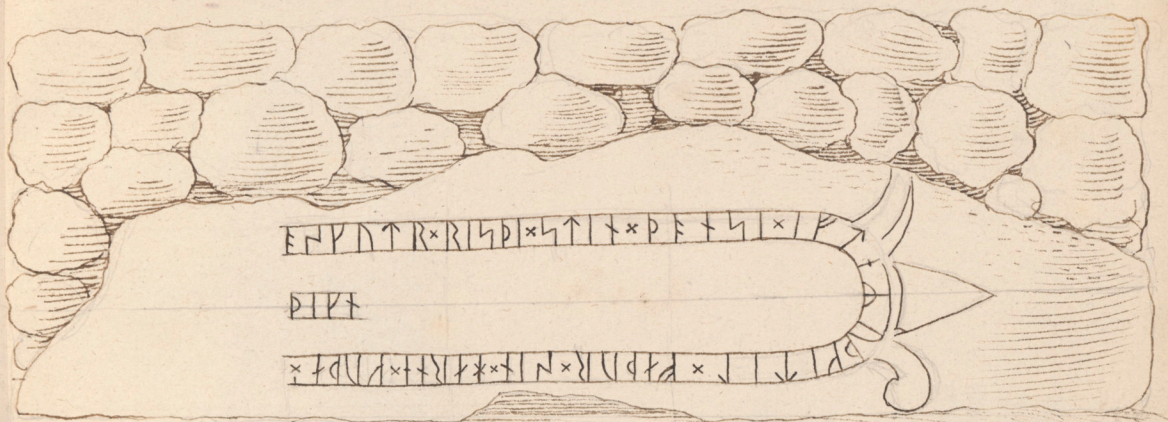 ᛂᛋᚴᚢᛏᚱ×ᚱᛁᛋᚦ×ᛋᛏᛁᚾ×ᚦᛅᚾᛋᛁ×ᛁᚠᛏ
×ᚠᛅᚦᚢᚱ×ᛋᛁᚾ×ᚼᛅᚱᚦᛅ×ᚴᚢᚦᛅᚾ×
ᚦᛁᚴᚾ